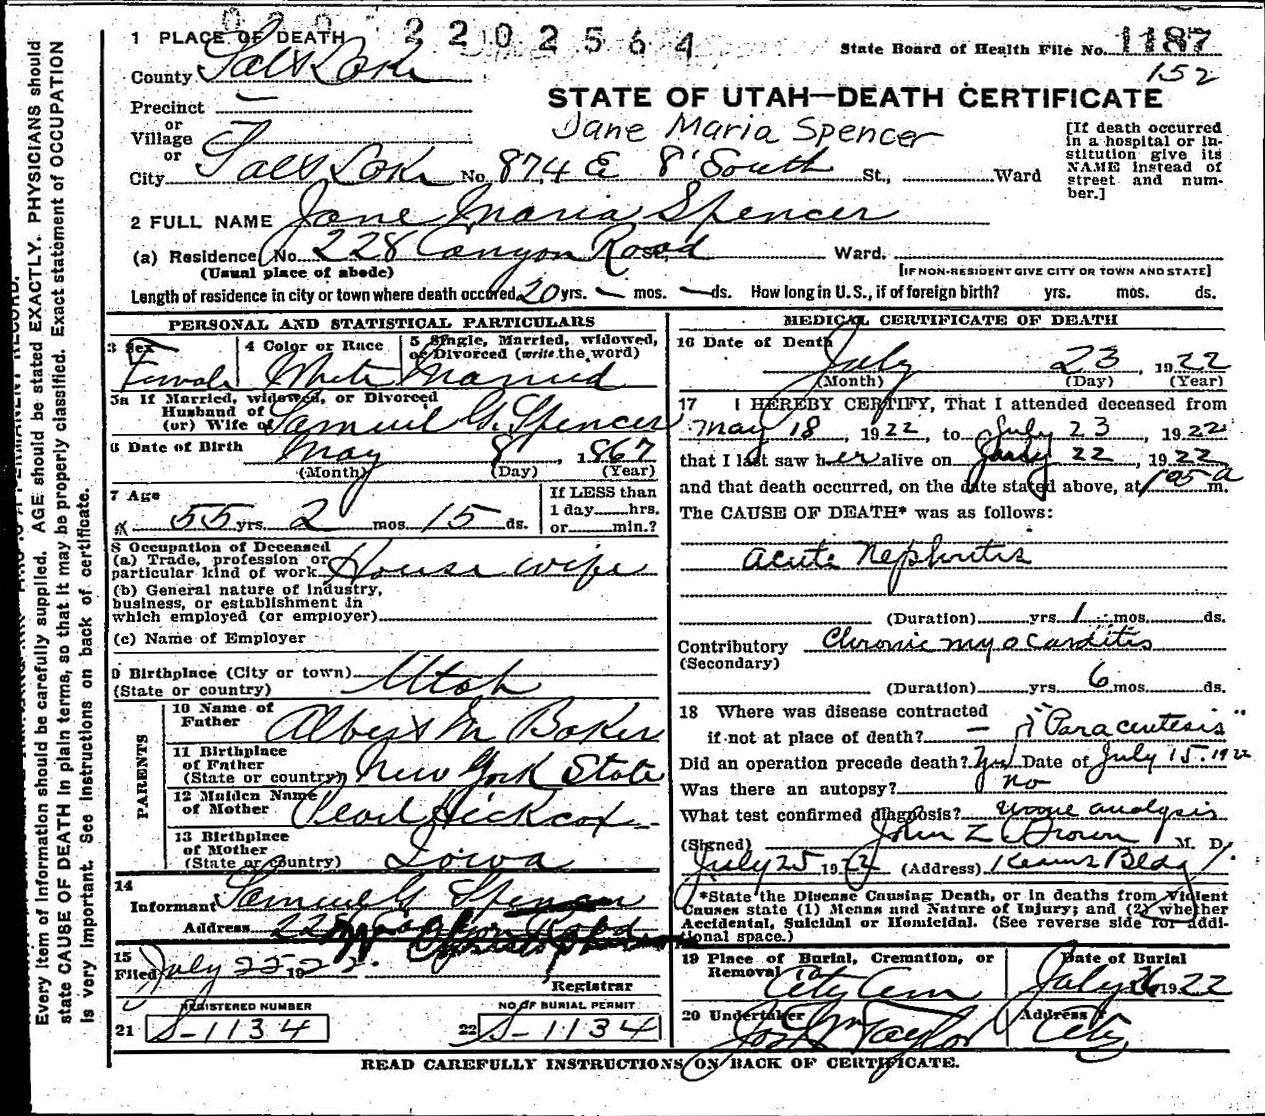 2202564
1 PLACE OF DEATH
State Board of Health File No. 1187
County Salt Lake
152
Precinct
STATE OF UTAH—DEATH CERTIFICATE
or
Village
Jane Maria Spencer
or
City Salt Lake No. 874 E 8 South St., Ward
[If death occurred in a hospital or institution give its NAME instead of street and number.]
2 FULL NAME Jane Maria Spencer
(a) Residence, No. 228 Canyon Road Ward.
(Usual place of abode)
[IF NON-RESIDENT GIVE CITY OR TOWN AND STATE]
Length of residence in city or town where death occured 20 yrs. — mos. — ds. How long in U.S., if of foreign birth? yrs. mos. ds.
PERSONAL AND STATISTICAL PARTICULARS
3 Sex Female
4 Color or Race White
5 Single, Married, widowed, or Divorced (write the word) Married
5a If Married, widowed, or Divorced
Husband of
(or) Wife of Samuel G. Spencer
6 Date of Birth May 8, 1867
(Month) (Day) (Year)
7 Age
55 yrs. 2 mos. 15 ds.
If LESS than
1 day hrs.
or min.?
8 Occupation of Deceased
(a) Trade, profession or
particular kind of work House wife
(b) General nature of industry,
business, or establishment in
which employed (or employer)
(c) Name of Employer
9 Birthplace (City or town)
(State or country) Utah
PARENTS
10 Name of
Father Albert M Baker
11 Birthplace
of Father
(State or country) New York State
12 Maiden Name
of Mother Pearl Hickcox
13 Birthplace
of Mother
(State or country) Iowa
14
Informant Samuel G Spencer
Address 22
15
Filed July 25 1922
Registrar
REGISTERED NUMBER
21 S-1134
NO OF BURIAL PERMIT
22 S-1134
MEDICAL CERTIFICATE OF DEATH
16 Date of Death
July 23, 1922
(Month) (Day) (Year)
17 I HEREBY CERTIFY, That I attended deceased from
May 18, 1922, to July 23, 1922
that I last saw her alive on July 22, 1922
and that death occurred, on the date stated above, at 105 a m.
The CAUSE OF DEATH* was as follows:
Acute Nephritis
(Duration) yrs. 1 mos. ds.
Contributory Chronic myocarditis
(Secondary)
(Duration) yrs. 6 mos. ds.
18 Where was disease contracted
if not at place of death? — "Paracentesis"
Did an operation precede death? Yes Date of July 15. 1922
Was there an autopsy? no
What test confirmed diagnosis? urine analysis
(Signed) John Z Brown M. D.
July 25 1922 (Address) Kearns Bldg
*State the Disease Causing Death, or in deaths from Violent
Causes state (1) Means and Nature of Injury; and (2) whether
Accidental, Suicidal or Homicidal. (See reverse side for addi-
tional space.)
19 Place of Burial, Cremation, or
Removal City Cem
Date of Burial
July 26 1922
20 Undertaker
Jos Wm Taylor
Address
City
READ CAREFULLY INSTRUCTIONS ON BACK OF CERTIFICATE.
Every item of information should be carefully supplied. AGE should be stated EXACTLY. PHYSICIANS should
state CAUSE OF DEATH in plain terms, so that it may be properly classified. Exact statement of OCCUPATION
is very important. See instructions on back of certificate.